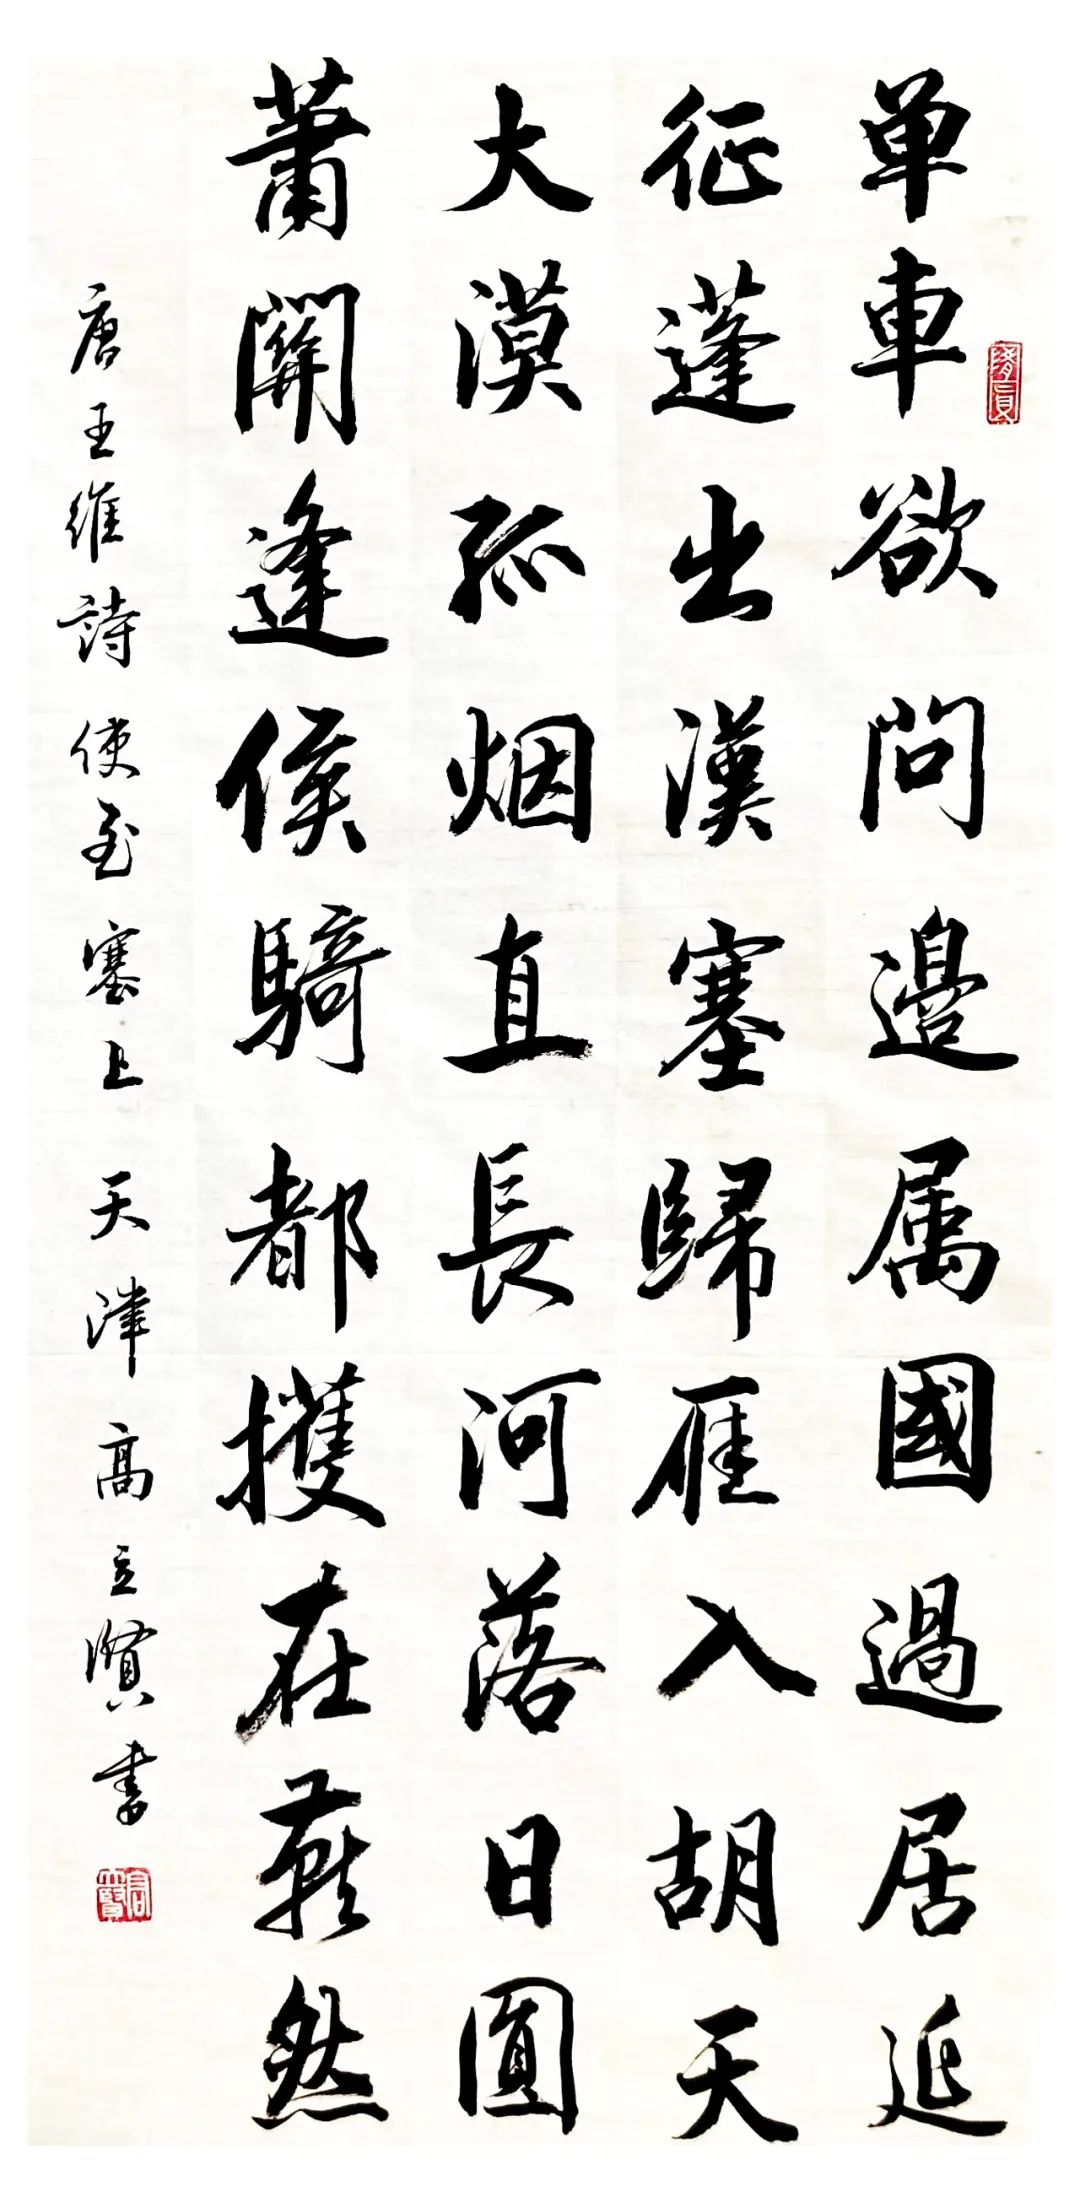 单車欲問邊属國過居延
征蓬出漢塞歸雁入胡天
大漠孤烟直長河落日圓
蕭關逢侯騎都護在燕然
唐王維詩使至塞上天津高立賢書